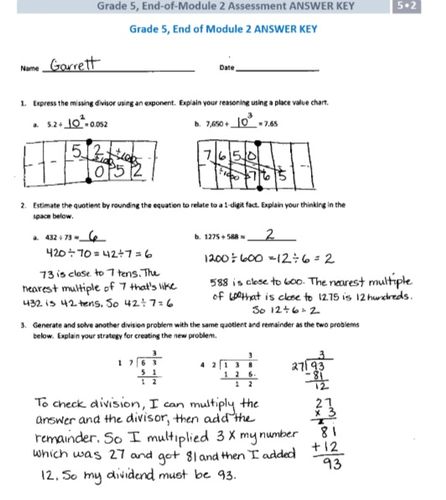 Grade 5, End-of-Module 2 Assessment ANSWER KEY 5•2
Grade 5, End of Module 2 ANSWER KEY
Name Garrett Date
1. Express the missing divisor using an exponent. Explain your reasoning using a place value chart.
a. 5.2 ÷ 10² = 0.052 b. 7,650 ÷ 10³ = 7.65
5 2 7 6 5 0
0 5 2 7 6 5
2. Estimate the quotient by rounding the equation to relate to a 1-digit fact. Explain your thinking in the
space below.
a. 432 ÷ 73 ≈ 6 b. 1275 ÷ 588 ≈ 2
420÷70=42÷7=6 1200÷600=12÷6=2
73 is close to 7 tens. The 588 is close to 600. The nearest multiple
nearest multiple of 7 that's like of that is close to 1275 is 12 hundreds.
432 is 42 tens, So 42÷7=6 So 12÷6=2
3. Generate and solve another division problem with the same quotient and remainder as the two problems
below. Explain your strategy for creating the new problem.
3 3 3
1 7 6 3 4 2 1 3 8 27 93
5 1 1 2 6 -81
1 2 1 2 12
To check division, I can multiply the 27
answer and the divisor, then add the x 3
remainder. So I multiplied 3 X my number 81
which was 27 and got 81 and then I added +12
12. So my dividend must be 93. 93